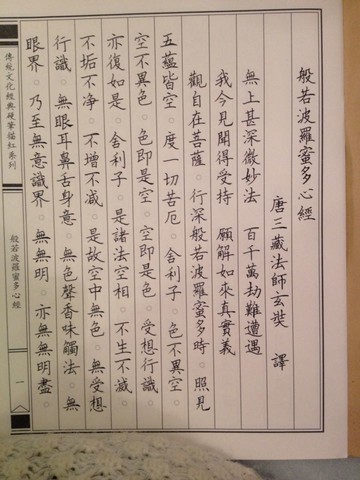 般若波羅蜜多心經
唐三藏法師玄奘 譯
無上甚深微妙法 百千萬劫難遭遇
我今見聞得受持 願解如來真實義
觀自在菩薩。行深般若波羅蜜多時。照見
五蘊皆空。度一切苦厄。舍利子。色不異空。
空不異色。色即是空。空即是色。受想行識。
亦復如是。舍利子。是諸法空相。不生不滅。
不垢不淨。不增不減。是故空中無色。無受想
行識。無眼耳鼻舌身意。無色聲香味觸法。無
眼界。乃至無意識界。無無明。亦無無明盡。
傳統文化經典硬筆描紅系列
般若波羅蜜多心經
一